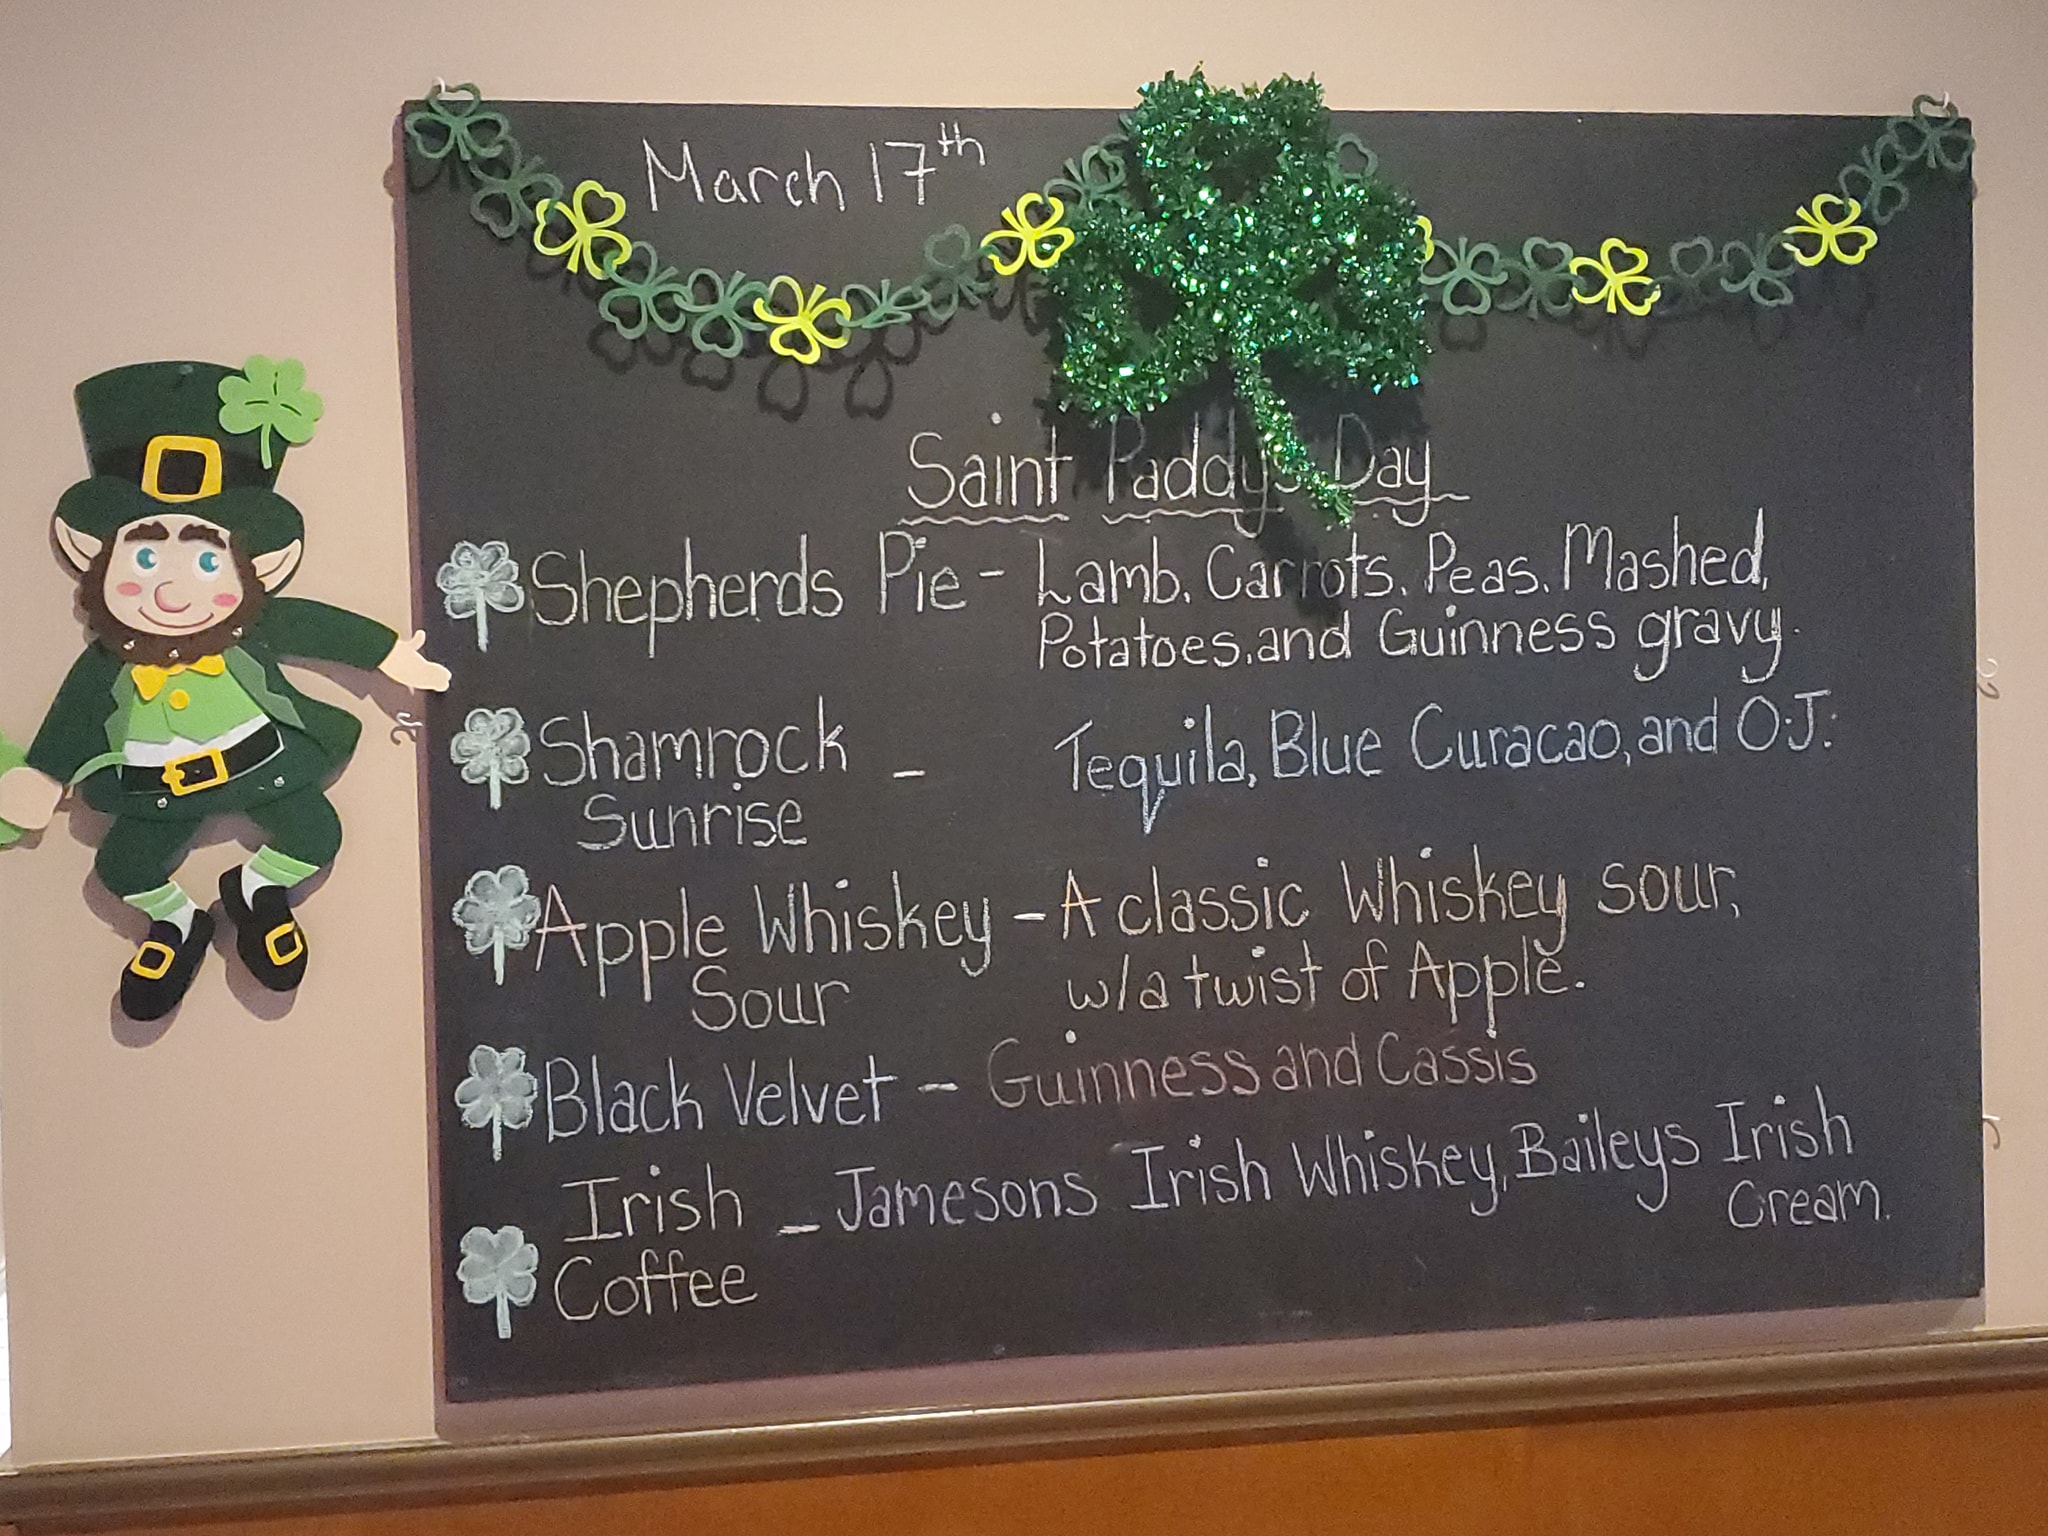 March 17th
Saint Paddys Day
Shepherds Pie - Lamb, Carrots, Peas, Mashed,
Potatoes, and Guinness gravy.
Shamrock - Tequila, Blue Curacao, and O.J.
Sunrise
Apple Whiskey - A classic Whiskey sour,
Sour w/a twist of Apple.
Black Velvet - Guinness and Cassis
Irish - Jamesons Irish Whiskey, Baileys Irish
Coffee Cream.